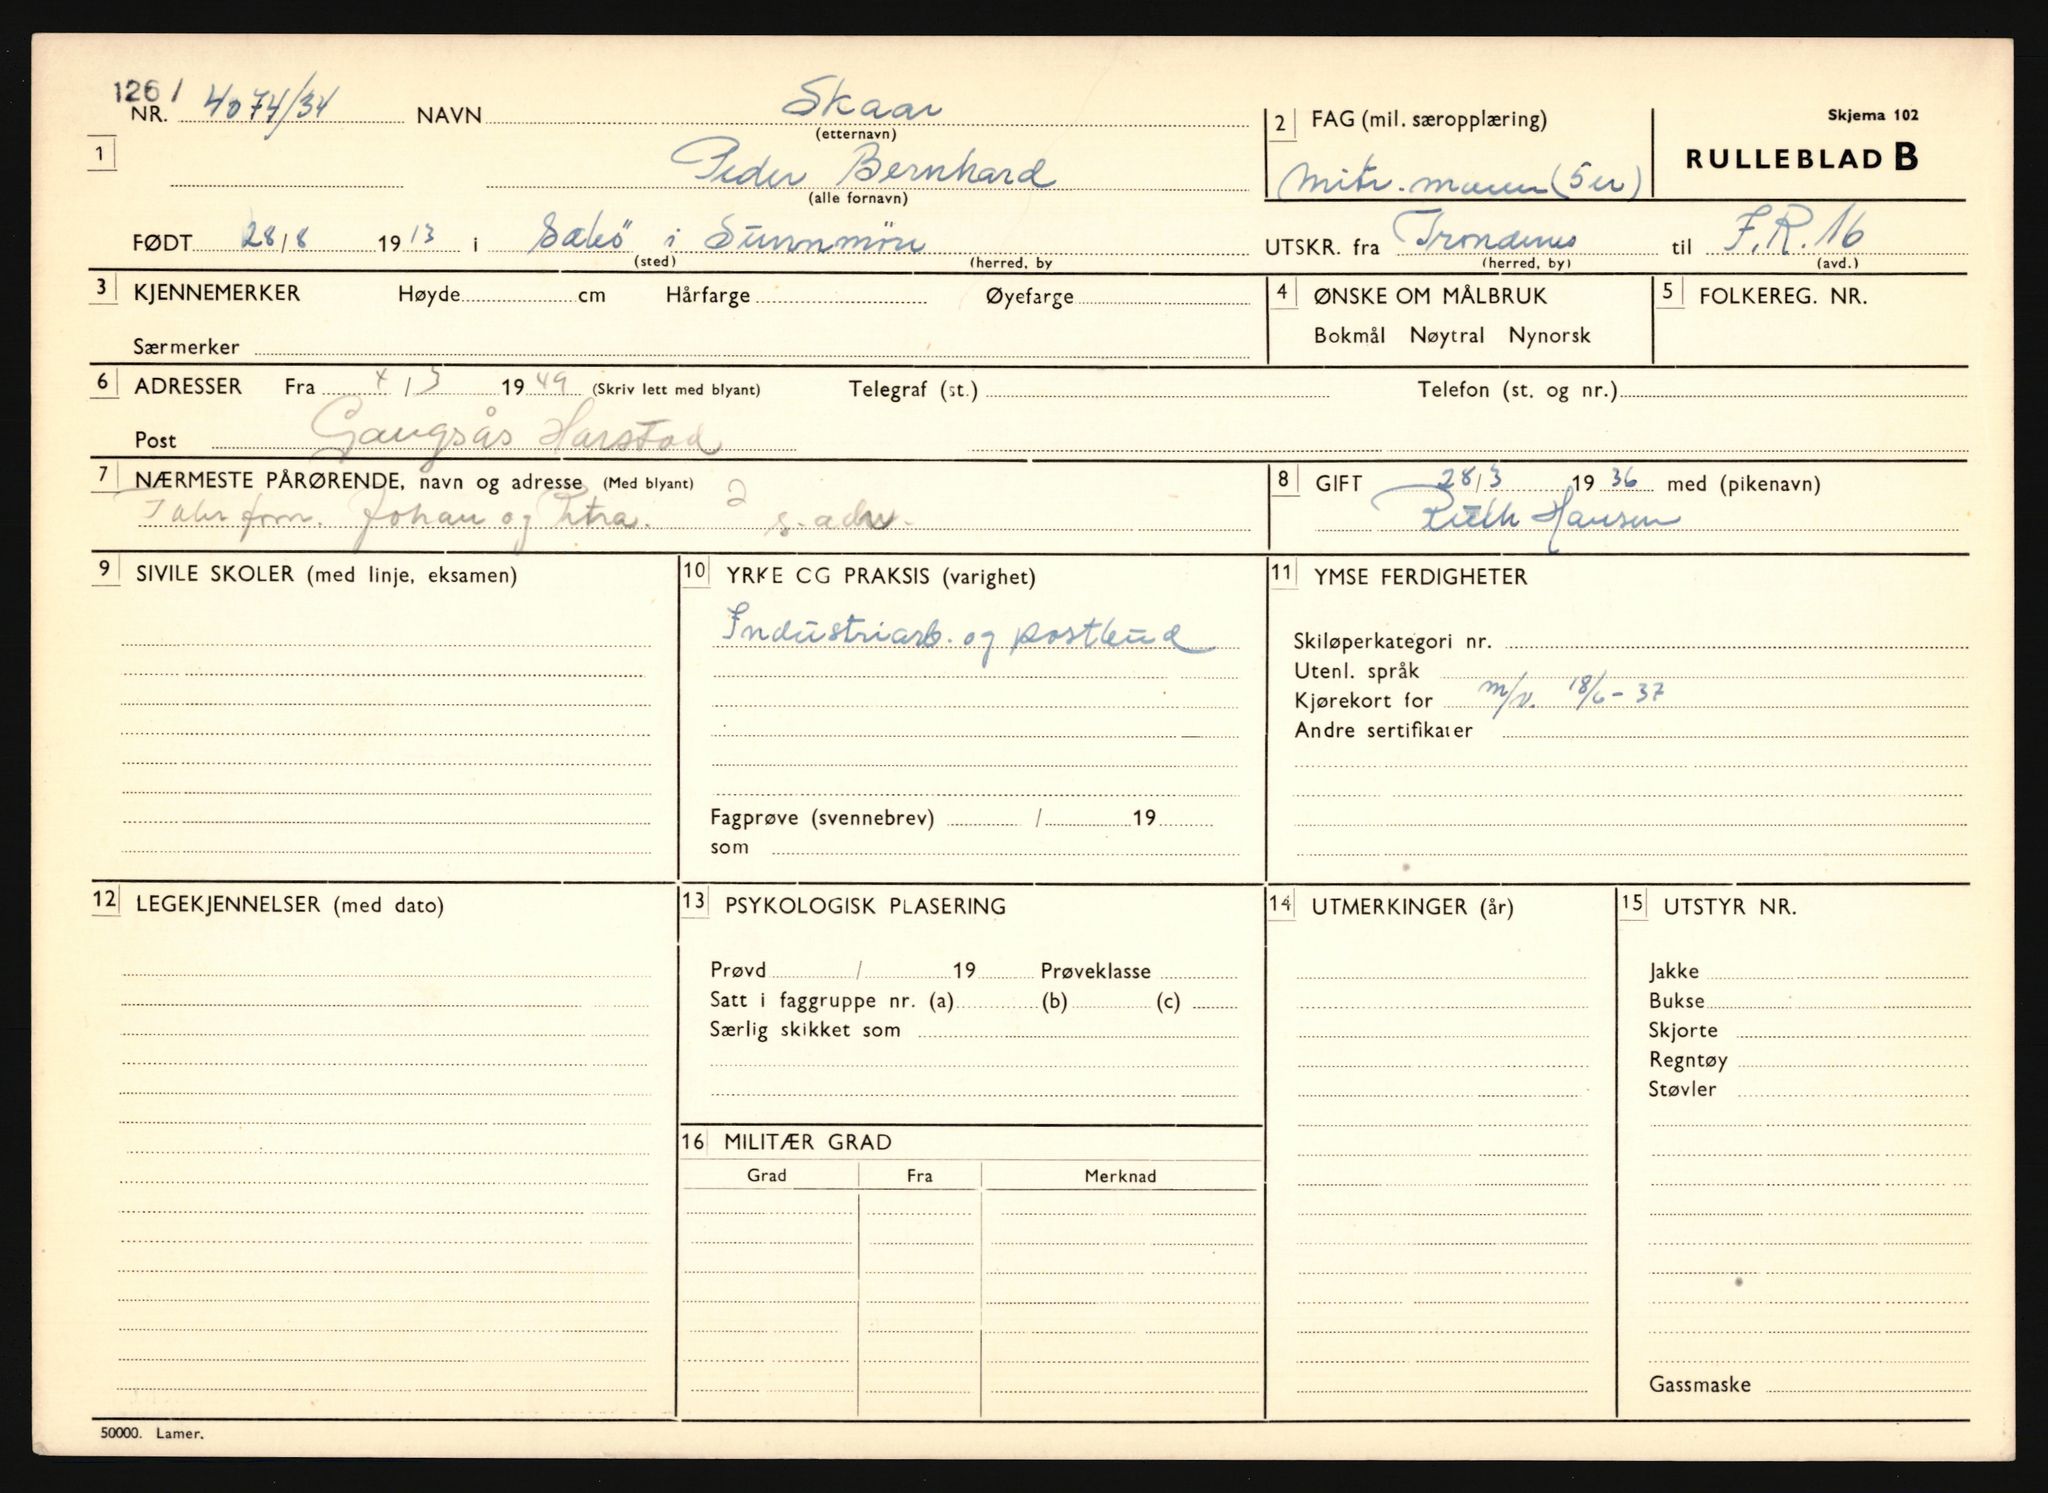 126 /
NR. 4074/34 NAVN Skaar
(etternavn)
2 FAG (mil. særopplæring)
Skjema 102
RULLEBLAD B
1
Peder Bernhard
(alle fornavn)
Mitr. mann (5er)
FØDT 28/8 1913 i Sæbö i Sunnmöre
(sted) (herred, by
UTSKR. fra Trondenes til F.R. 16
(herred, by) (avd.)
3 KJENNEMERKER Høyde cm Hårfarge Øyefarge
Særmerker
4 ØNSKE OM MÅLBRUK
Bokmål Nøytral Nynorsk
5 FOLKEREG. NR.
6 ADRESSER Fra 4/3 1949 (Skriv lett med blyant) Telegraf (st.) Telefon (st. og nr.)
Post Gangsås Harstad
7 NÆRMESTE PÅRØRENDE, navn og adresse (Med blyant)
Johan og Petra. s. adr.
8 GIFT 28/3 1936 med (pikenavn)
Ruth Hansen
9 SIVILE SKOLER (med linje, eksamen)
10 YRKE CG PRAKSIS (varighet)
Industriarb. og postbud
Fagprøve (svennebrev) / 19
som
11 YMSE FERDIGHETER
Skiløperkategori nr.
Utenl. språk
Kjørekort for m/v. 18/6-37
Andre sertifikater
12 LEGEKJENNELSER (med dato)
13 PSYKOLOGISK PLASERING
Prøvd / 19 Prøveklasse
Satt i faggruppe nr. (a) (b) (c)
Særlig skikket som
14 UTMERKINGER (år)
15 UTSTYR NR.
Jakke
Bukse
Skjorte
Regntøy
Støvler
Gassmaske
16 MILITÆR GRAD
Grad Fra Merknad
50000. Lamer.